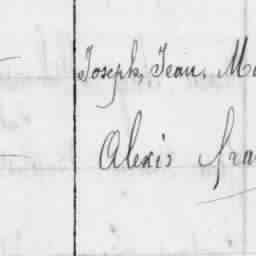 Joseph, Jean, M
Alexis fran